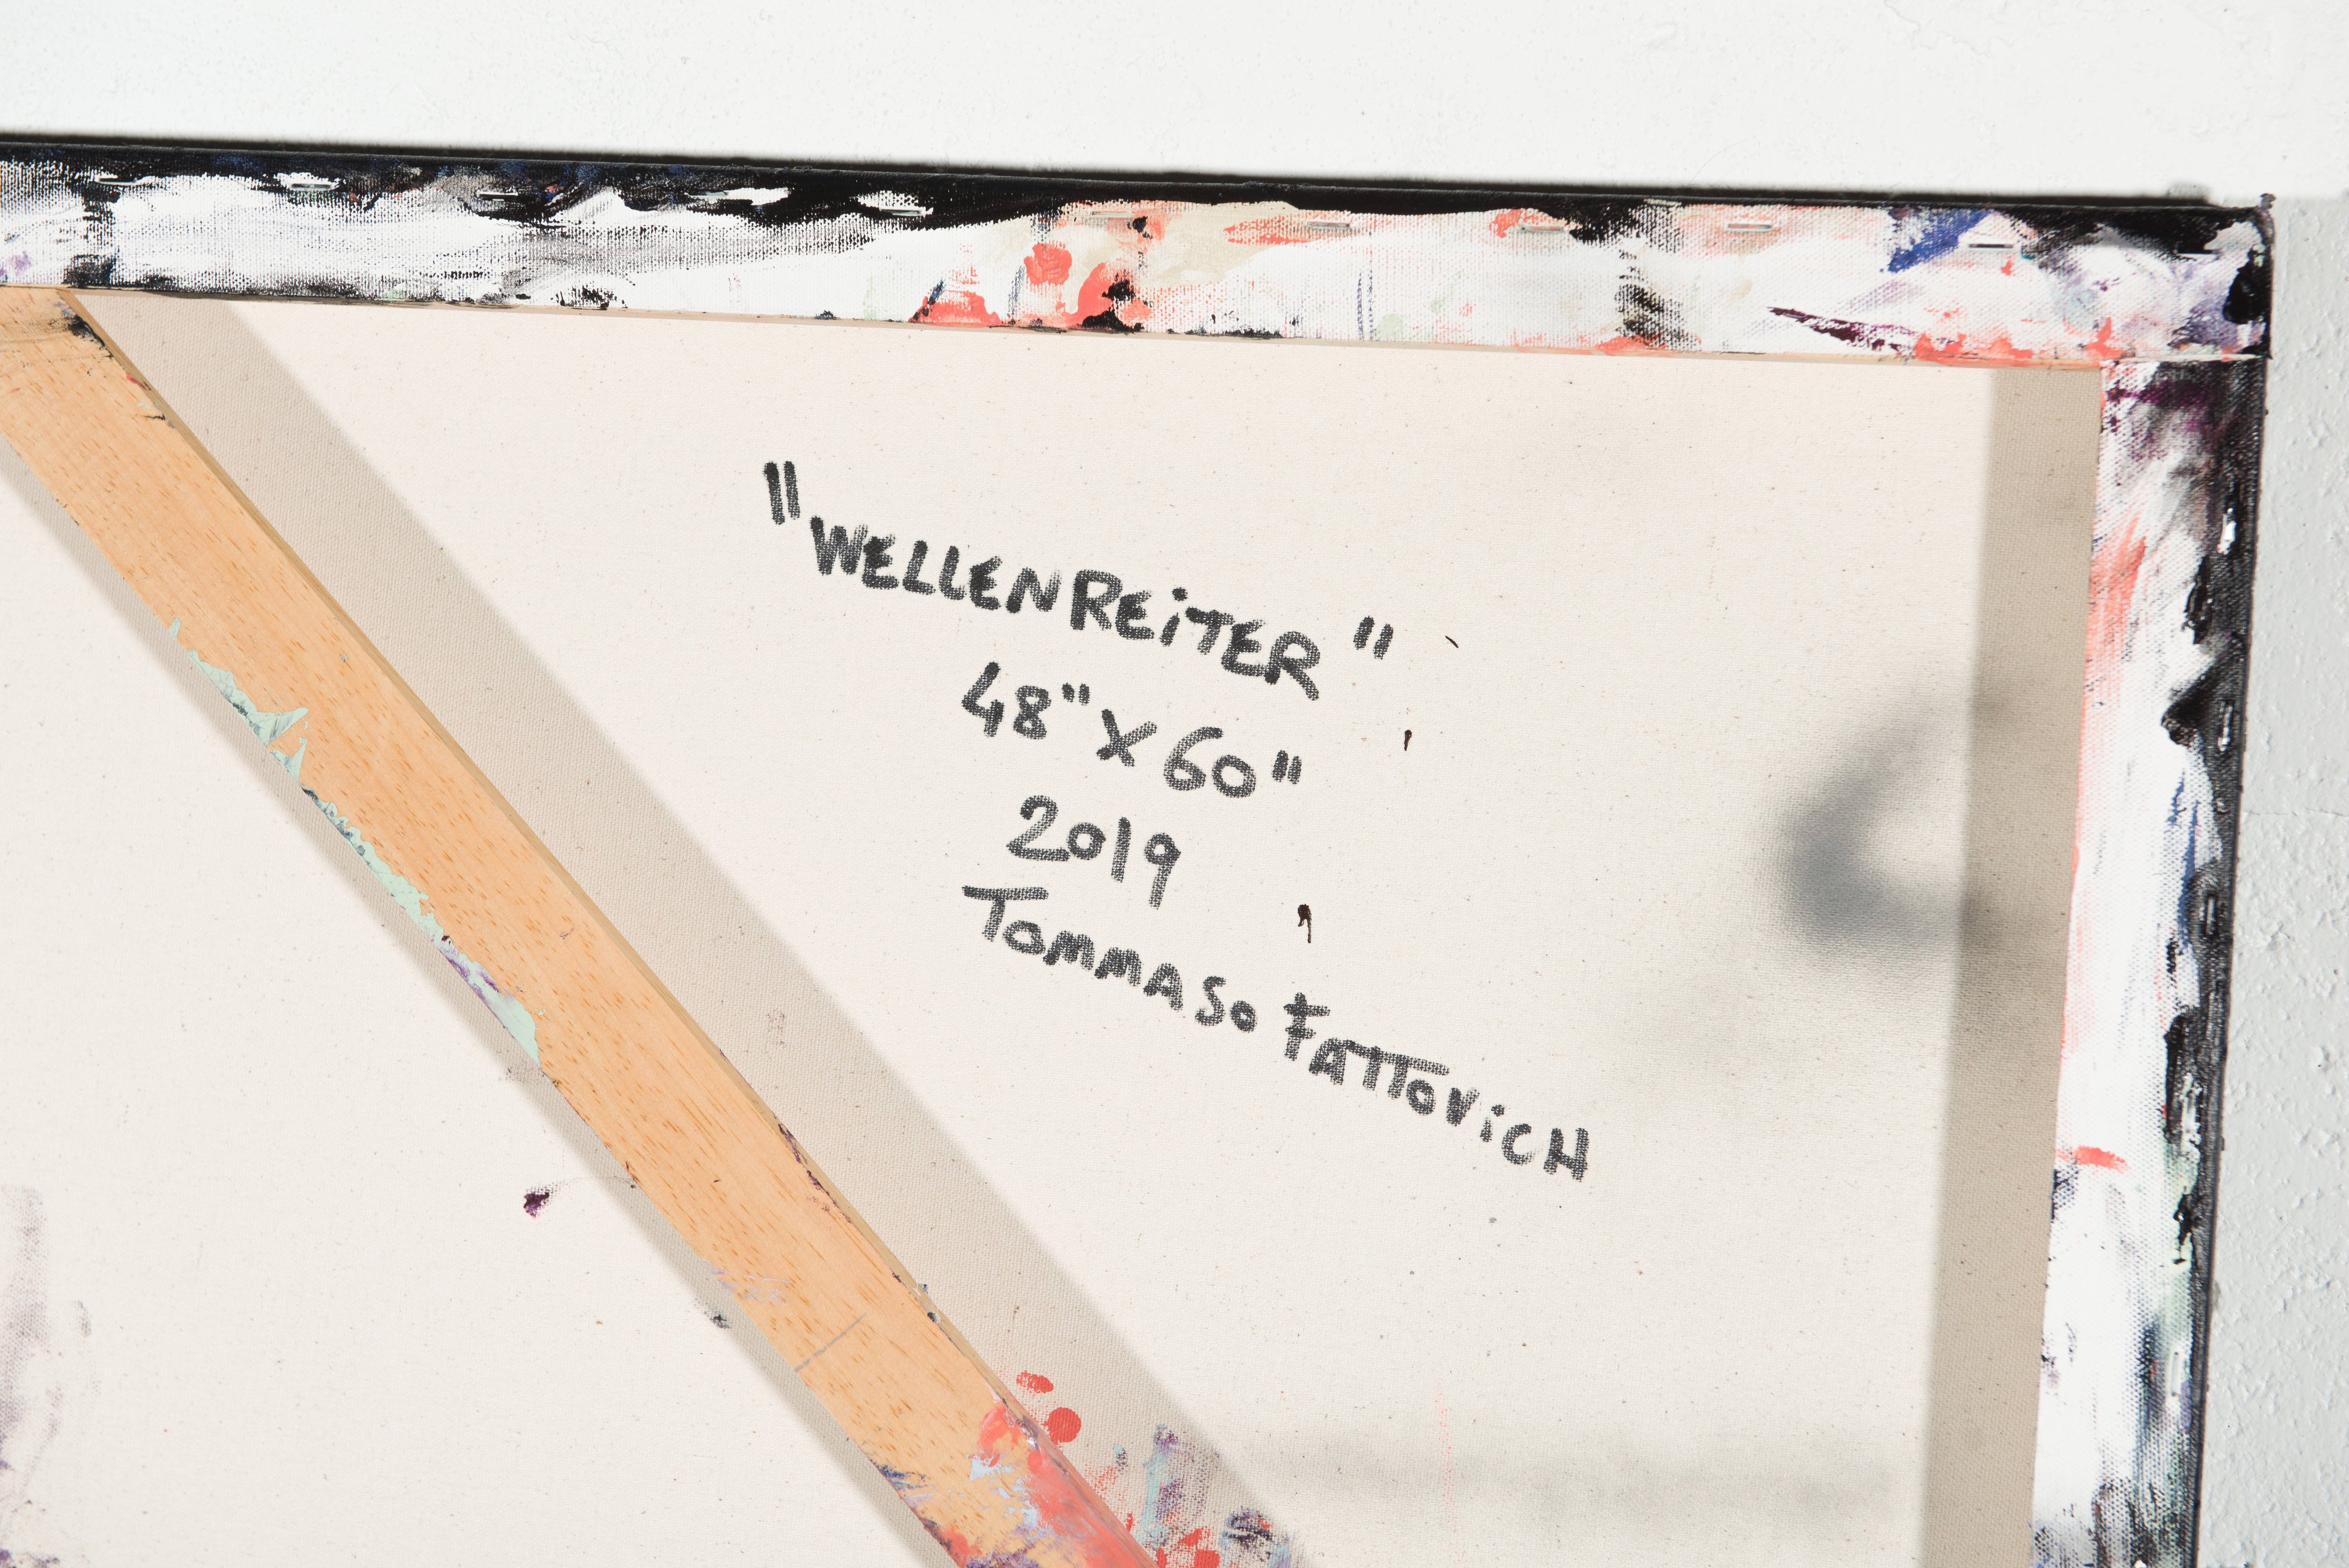 "WELLENREiTER"
48" X 60"
2019
TOMMASO FATTOViCH